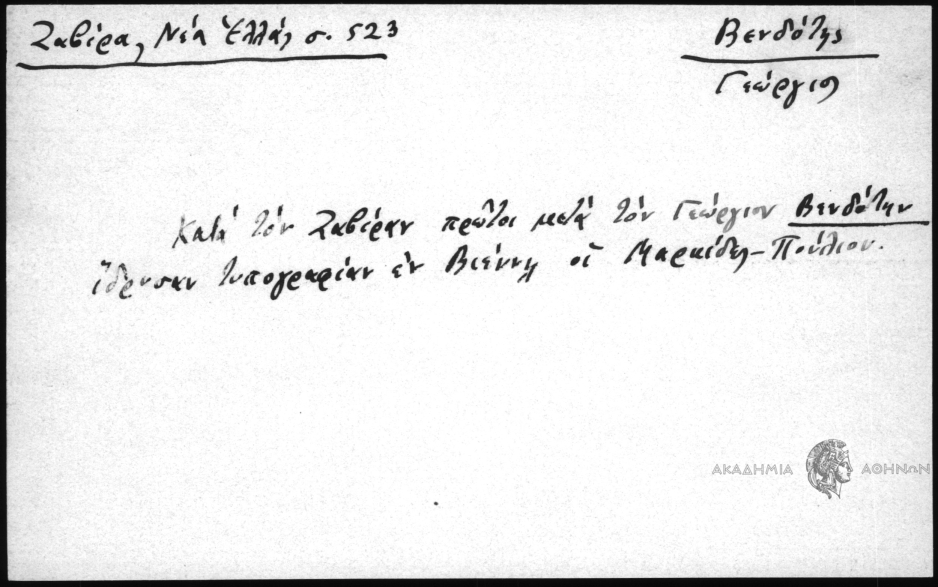 Ζαβίρα, Νέα Ἑλλάς σ. 523
Βενδότης
Γεώργιος
Κατά τόν Ζαβίραν πρῶτοι μετά τόν Γεώργιον Βενδότην
ἵδρυσαν τυπογραφίαν ἐν Βιέννῃ οἱ Μαρκίδες-Πούλιου.
ΑΚΑΔΗΜΙΑ ΑΘΗΝΩΝ